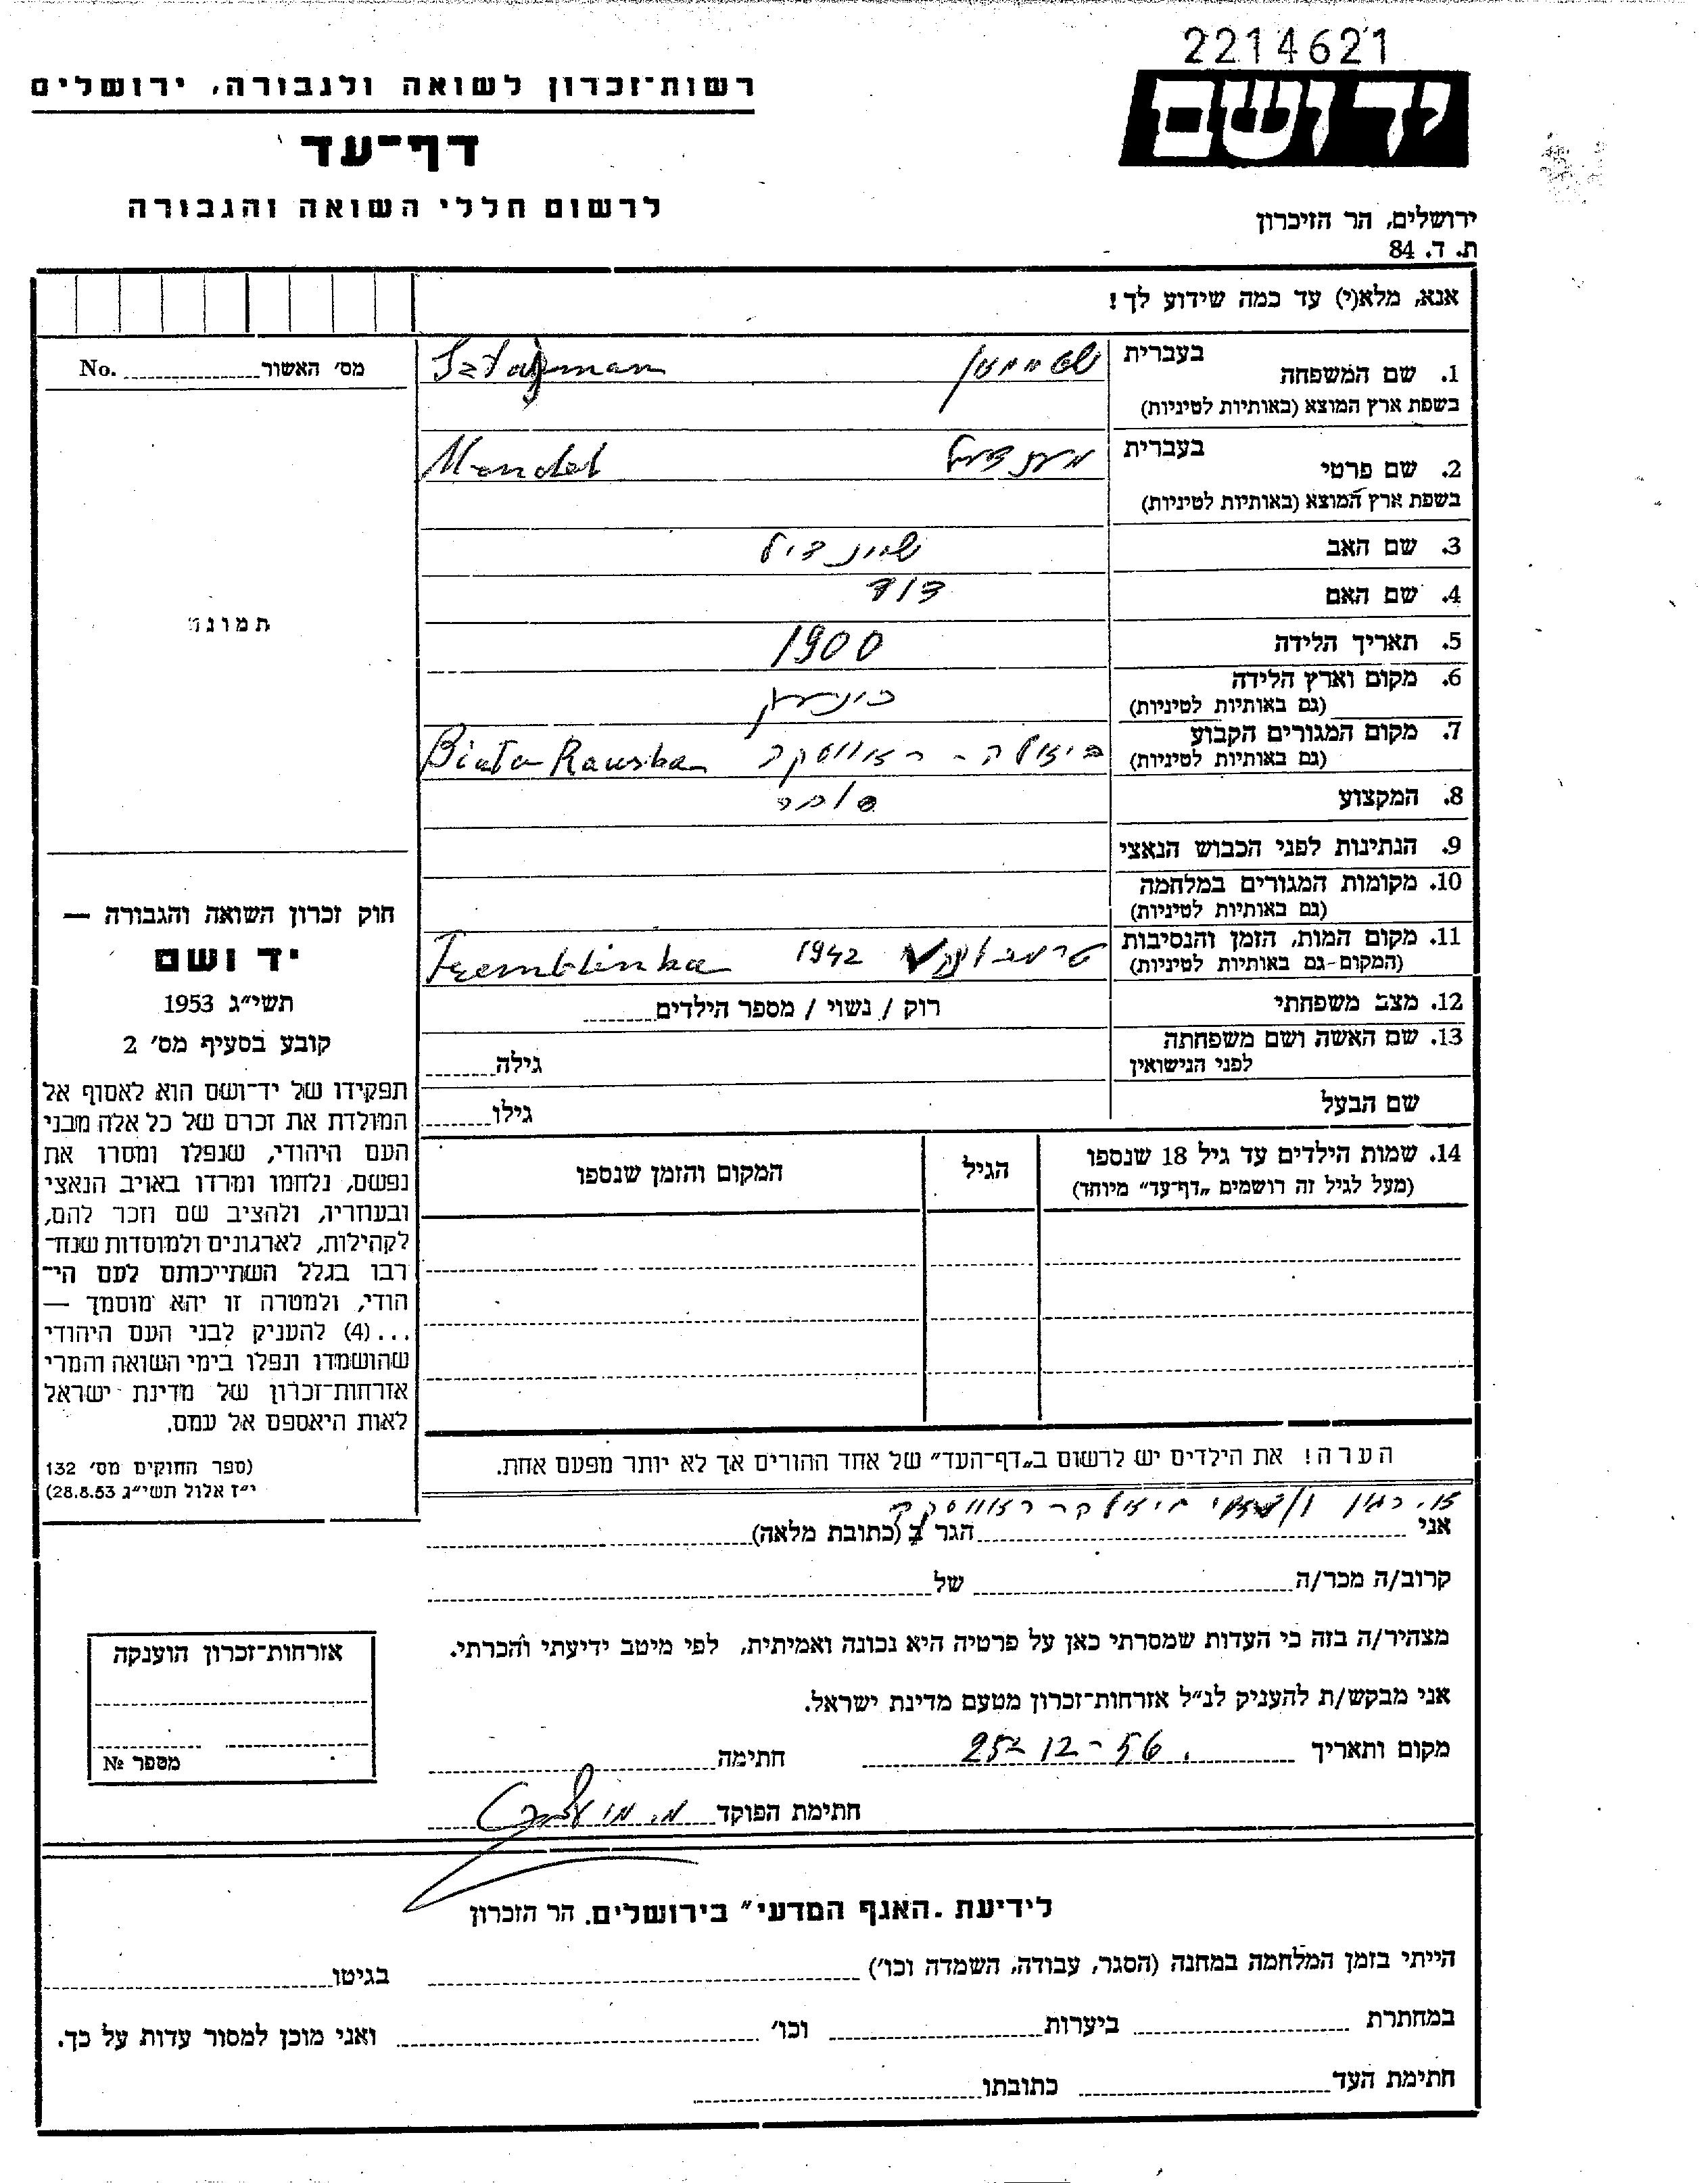 2214621
יד ושם
רשות־זכרון לשואה ולגבורה, ירושלים
דף־עד
לרשום חללי השואה והגבורה
ירושלים, הר הזיכרון
ת. ד. 84
אנא, מלא(י) עד כמה שידוע לך!
1. שם המשפחה
בעברית
בשפת ארץ המוצא (באותיות לטיניות)
2. שם פרטי
בעברית
Mendel
בשפת ארץ המוצא (באותיות לטיניות)
3. שם האב
4. שם האם
5. תאריך הלידה 1900
6. מקום וארץ הלידה
(גם באותיות לטיניות)
7. מקום המגורים הקבוע ביאלה - ראווסקה Biała Rawska
(גם באותיות לטיניות)
8. המקצוע סוחר
9. הנתינות לפני הכבוש הנאצי
10. מקומות המגורים במלחמה
(גם באותיות לטיניות)
11. מקום המות, הזמן והנסיבות 1942 Tremblinka
(המקום-גם באותיות לטיניות)
12. מצב משפחתי רוק / נשוי / מספר הילדים
13. שם האשה ושם משפחתה
לפני הנישואין גילה
שם הבעל גילו
14. שמות הילדים עד גיל 18 שנספו הגיל המקום והזמן שנספו
(מעל לגיל זה רושמים „דף־עד" מיוחד)
הערה! את הילדים יש לרשום ב„דף־העד" של אחד ההורים אך לא יותר מפעם אחת.
מס' האשור No.
תמונה
חוק זכרון השואה והגבורה —
יד ושם
תשי״ג 1953
קובע בסעיף מס' 2
תפקידו של יד־ושם הוא לאסוף אל
המולדת את זכרם של כל אלה מבני
העם היהודי, שנפלו ומסרו את
נפשם, נלחמו ומרדו באויב הנאצי
ובעוזריו, ולהציב שם וזכר להם,
לקהילות, לארגונים ולמוסדות שנח־
רבו בגלל השתייכותם לעם הי־
הודי, ולמטרה זו יהא מוסמך —
...(4) להעניק לבני העם היהודי
שהושמדו ונפלו בימי השואה והמרי
אזרחות־זכרון של מדינת ישראל
לאות היאספם אל עמם.
(ספר החוקים מס' 132
י״ז אלול תשי״ג 28.8.53)
ביאלה - ראווסקה
אני הגר ב (כתובת מלאה)
קרוב/ה מכר/ה של
מצהיר/ה בזה כי העדות שמסרתי כאן על פרטיה היא נכונה ואמיתית, לפי מיטב ידיעתי והכרתי.
אני מבקש/ת להעניק לנ״ל אזרחות־זכרון מטעם מדינת ישראל.
מקום ותאריך 25-12-56 חתימה
חתימת הפוקד
אזרחות־זכרון הוענקה
מספר №
לידיעת „האגף המדעי" בירושלים. הר הזכרון
הייתי בזמן המלחמה במחנה (הסגר, עבודה, השמדה וכו') בגיטו
במחתרת ביערות וכו' ואני מוכן למסור עדות על כך.
חתימת העד כתובתו